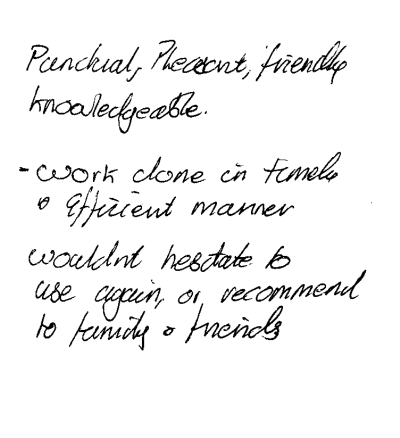 Punctual, Pleasant, friendly
knowledgeable.
- work done in timely
& efficient manner
wouldnt hesitate to
use again, or recommend
to family & friends